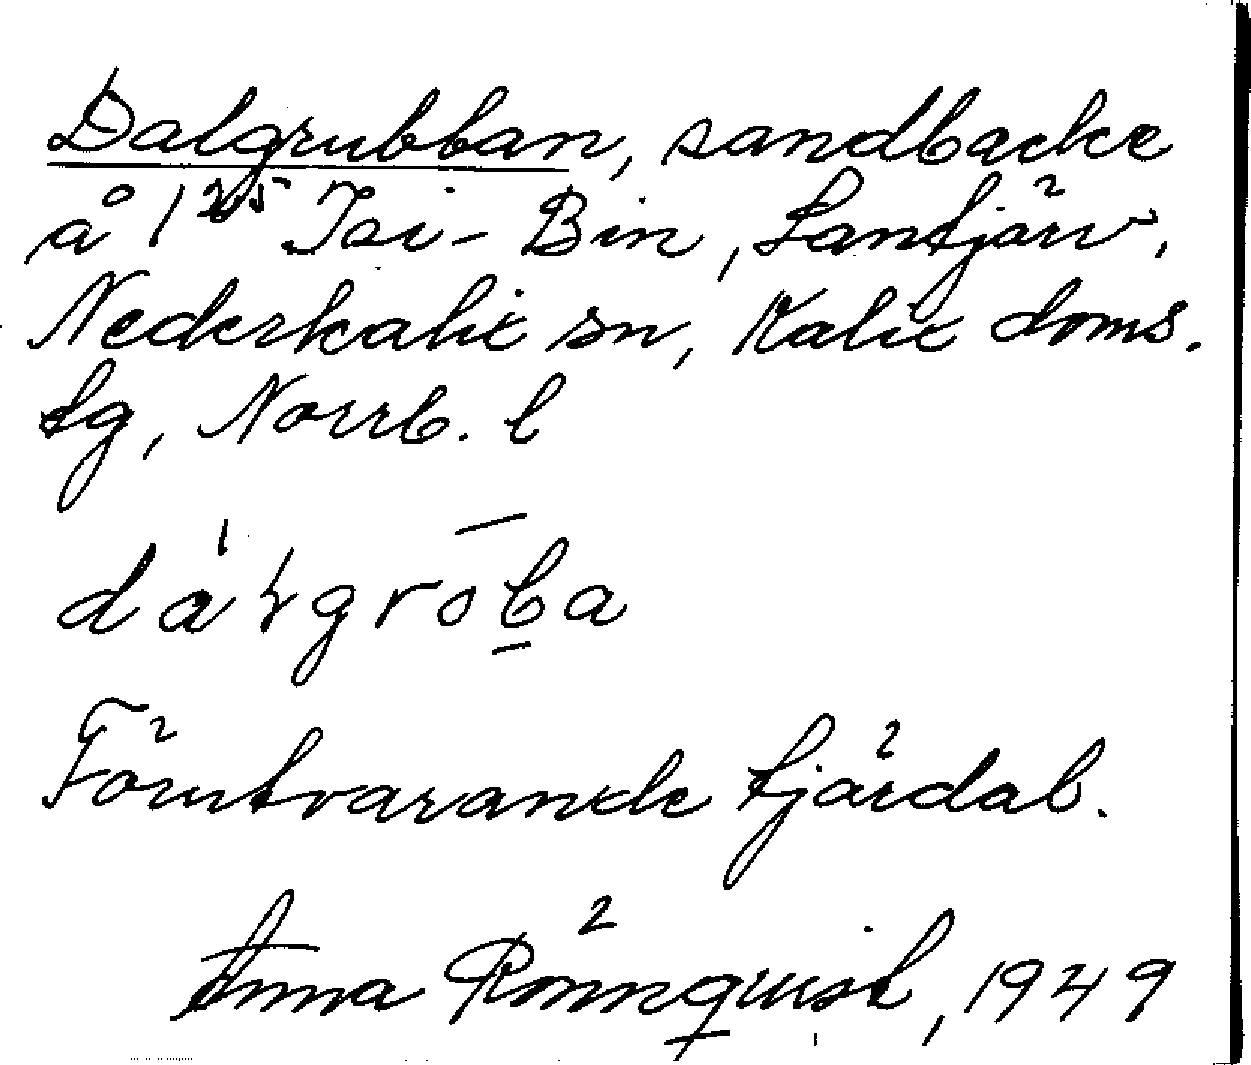 Dalgrubban, sandbacke
å 1²⁵ Isi-Bin, Säntjärv,
Nederkalix sn, Kalix doms.
tg, Norrb. l
Förutvarande tjärdal.
Anna Rönnquist, 1949